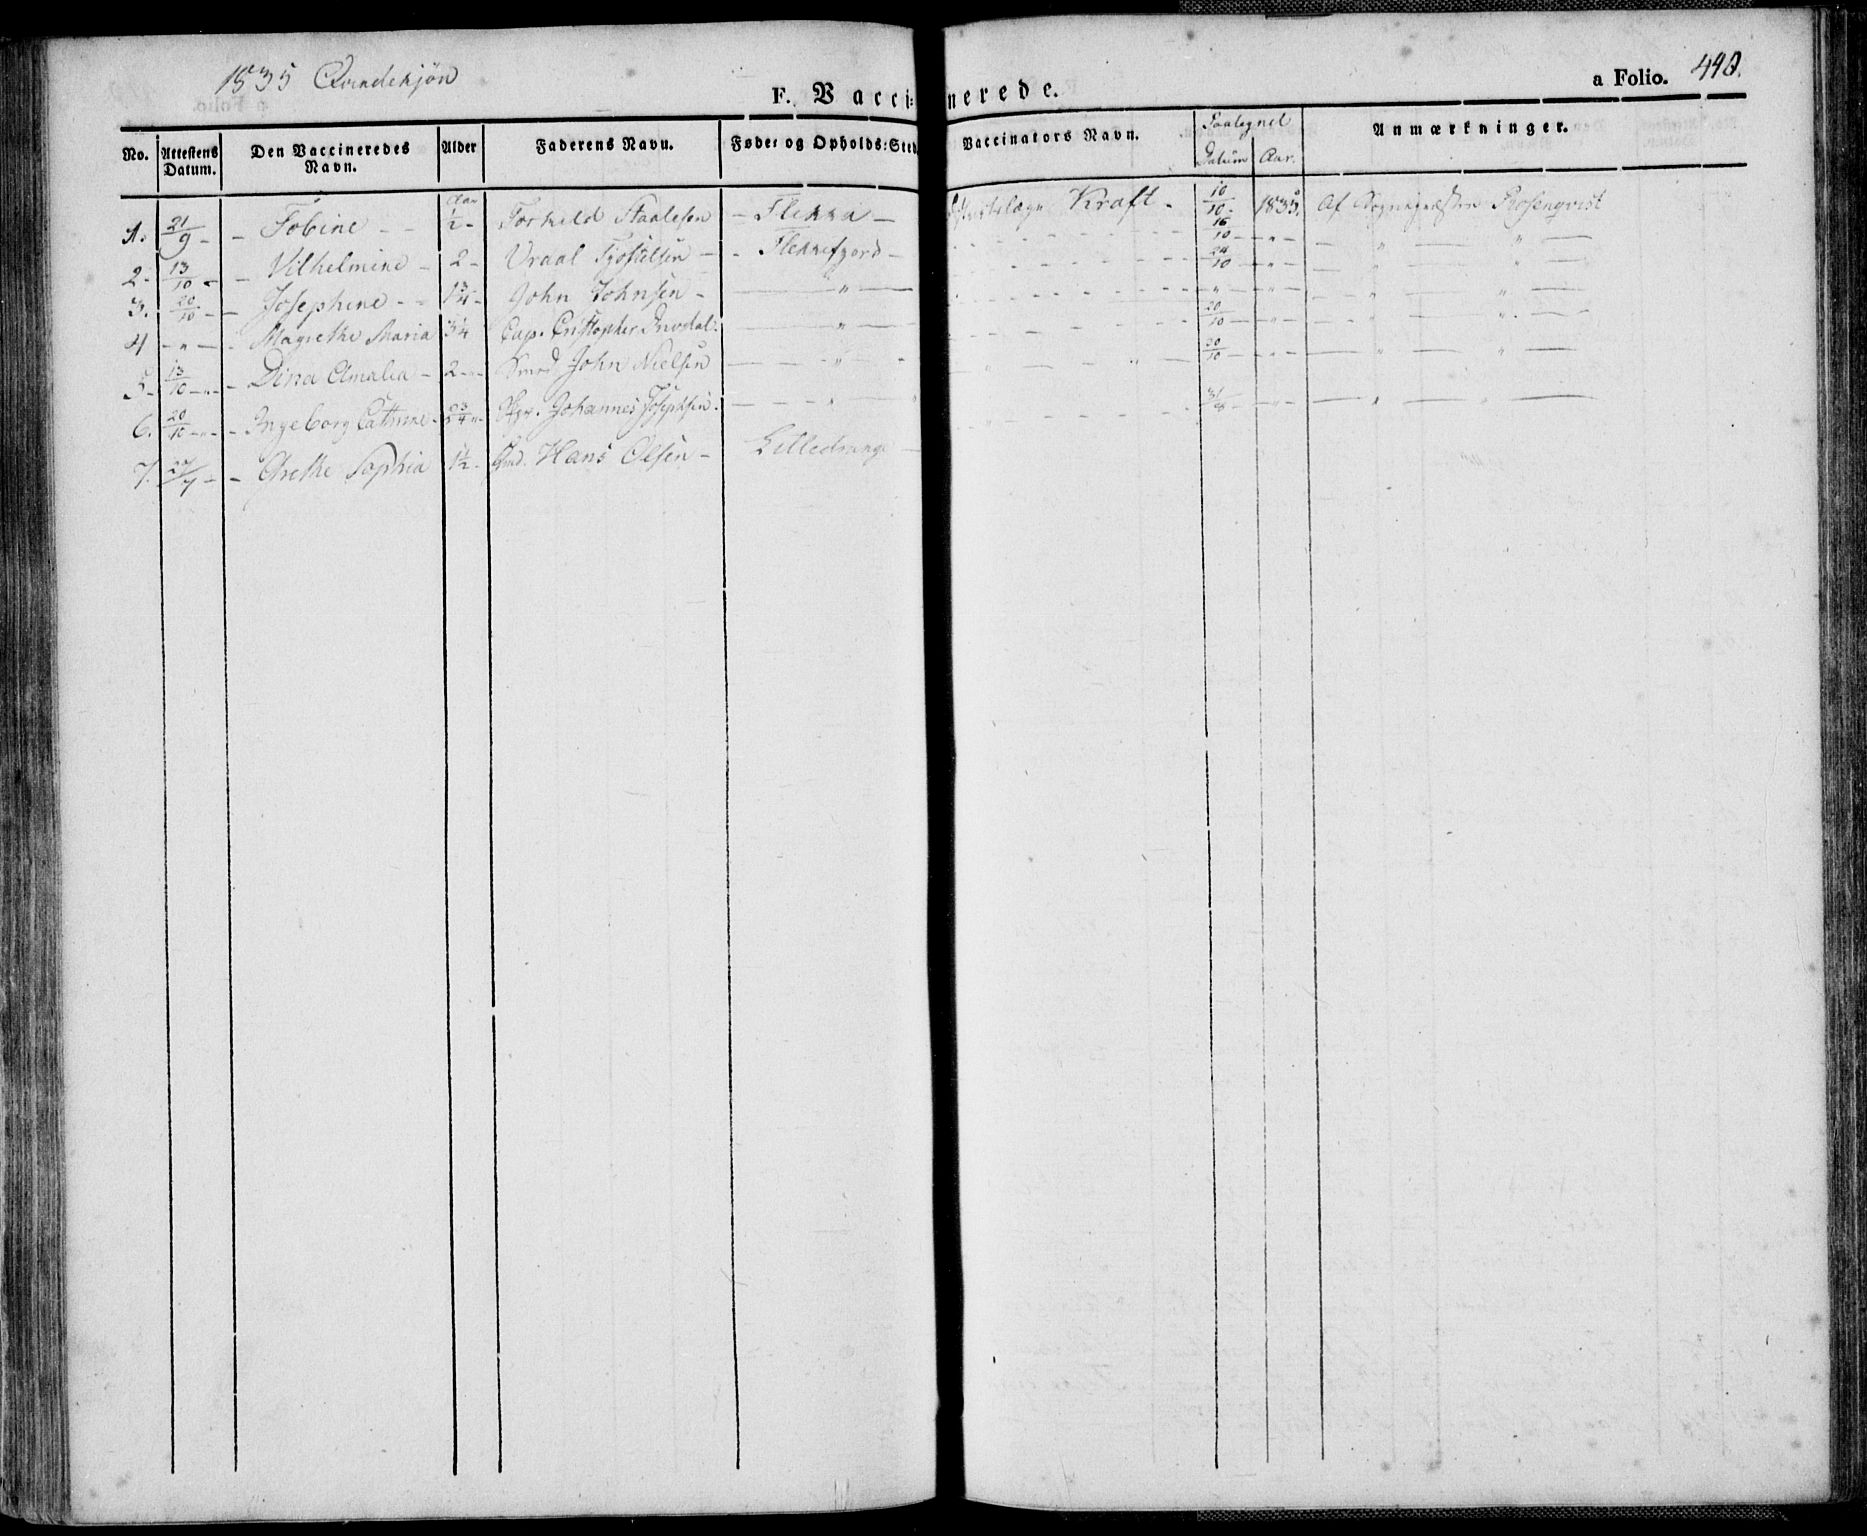 1835 Qvindekjøn
F. Vaccinerede.
a Folio. 440.
No. Attestens Datum. Den Vaccineredes Navn. Alder Faderens Navn. Føde- og Opholds-Sted. Vaccinators Navn. Paategnet Datum Aar. Anmærkninger.
1. 21/9 - - Tobine - - Aar 1/2 - Torkild Staalesen - Flekka - Kraft - 10/10 - 1835. Af Sognepræsten Rosenqvist
2 - 13/10 - - Vilhelmine - 2 - Vraal - - Flekkefjord - - - - 15/10 - " - " - "
3. 20/10 - - Josephine - - 1 3/4 - John Johnsen - - " - - - - 24/10 - " - " - "
4 - " - - Magrethe Maria 3/4 Cap. Cristopher - " - - - - " - " - " - "
5 - 13/10 - " - - Dina Amalia - 2 - " - Smed John Nielsen - " - - " - " 20/10 - " - " - "
6. 20/10 - " - - Ingeborg Cathrine - 2 3/4 " - Johannes Josephsen. - " - " 30/10 - " - " - "
7. 27/7 - - Grethe Sophia 1 1/2 - Hans Olsen - - " 31/8 - " - " - "